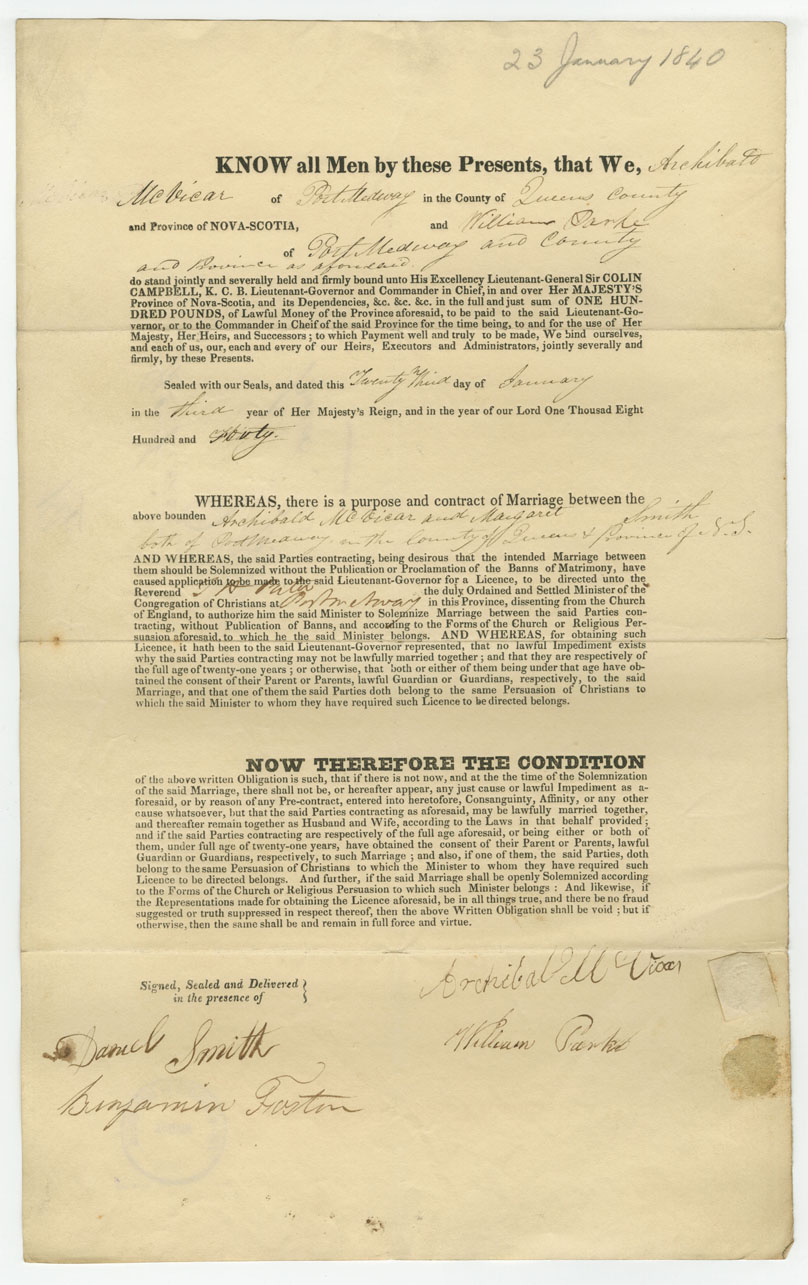 23 January 1840
KNOW all Men by these Presents, that We, Archibald
McVicar of Port Medway in the County of Queens County
and Province of NOVA-SCOTIA, and William Parke
of Port Medway and County
and Province as aforesaid.
do stand jointly and severally held and firmly bound unto His Excellency Lieutenant-General Sir COLIN
CAMPBELL, K. C. B. Lieutenant-Governor and Commander in Chief, in and over Her MAJESTY'S
Province of Nova-Scotia, and its Dependencies, &c. &c. &c. in the full and just sum of ONE HUN-
DRED POUNDS, of Lawful Money of the Province aforesaid, to be paid to the said Lieutenant-Go-
vernor, or to the Commander in Cheif of the said Province for the time being, to and for the use of Her
Majesty, Her Heirs, and Successors; to which Payment well and truly to be made, We bind ourselves,
and each of us, our, each and every of our Heirs, Executors and Administrators, jointly severally and
firmly, by these Presents.
Sealed with our Seals, and dated this Twenty Third day of January
in the third year of Her Majesty's Reign, and in the year of our Lord One Thousad Eight
Hundred and Forty.
WHEREAS, there is a purpose and contract of Marriage between the
above bounden Archibald McVicar and Margaret Smith
both of Port Medway in the County of Queens & Province of N. S.
AND WHEREAS, the said Parties contracting, being desirous that the intended Marriage between
them should be Solemnized without the Publication or Proclamation of the Banns of Matrimony, have
caused application to be made to the said Lieutenant-Governor for a Licence, to be directed unto the
Reverend the duly Ordained and Settled Minister of the
Congregation of Christians at Port Medway in this Province, dissenting from the Church
of England, to authorize him the said Minister to Solemnize Marriage between the said Parties con-
tracting, without Publication of Banns, and according to the Forms of the Church or Religious Per-
suasion aforesaid, to which he the said Minister belongs. AND WHEREAS, for obtaining such
Licence, it hath been to the said Lieutenant-Governor represented, that no lawful Impediment exists
why the said Parties contracting may not be lawfully married together; and that they are respectively of
the full age of twenty-one years; or otherwise, that both or either of them being under that age have ob-
tained the consent of their Parent or Parents, lawful Guardian or Guardians, respectively, to the said
Marriage, and that one of them the said Parties doth belong to the same Persuasion of Christians to
which the said Minister to whom they have required such Licence to be directed belongs.
NOW THEREFORE THE CONDITION
of the above written Obligation is such, that if there is not now, and at the the time of the Solemnization
of the said Marriage, there shall not be, or hereafter appear, any just cause or lawful Impediment as a-
foresaid, or by reason of any Pre-contract, entered into heretofore, Consanguinty, Affinity, or any other
cause whatsoever, but that the said Parties contracting as aforesaid, may be lawfully married together,
and thereafter remain together as Husband and Wife, according to the Laws in that behalf provided;
and if the said Parties contracting are respectively of the full age aforesaid, or being either or both of
them, under full age of twenty-one years, have obtained the consent of their Parent or Parents, lawful
Guardian or Guardians, respectively, to such Marriage; and also, if one of them, the said Parties, doth
belong to the same Persuasion of Christians to which the Minister to whom they have required such
Licence to be directed belongs. And further, if the said Marriage shall be openly Solemnized according
to the Forms of the Church or Religious Persuasion to which such Minister belongs: And likewise, if
the Representations made for obtaining the Licence aforesaid, be in all things true, and there be no fraud
suggested or truth suppressed in respect thereof, then the above Written Obligation shall be void; but if
otherwise, then the same shall be and remain in full force and virtue.
Signed, Sealed and Delivered
in the presence of
Archibald McVicar
Daniel Smith
William Parke
Benjamin Foster